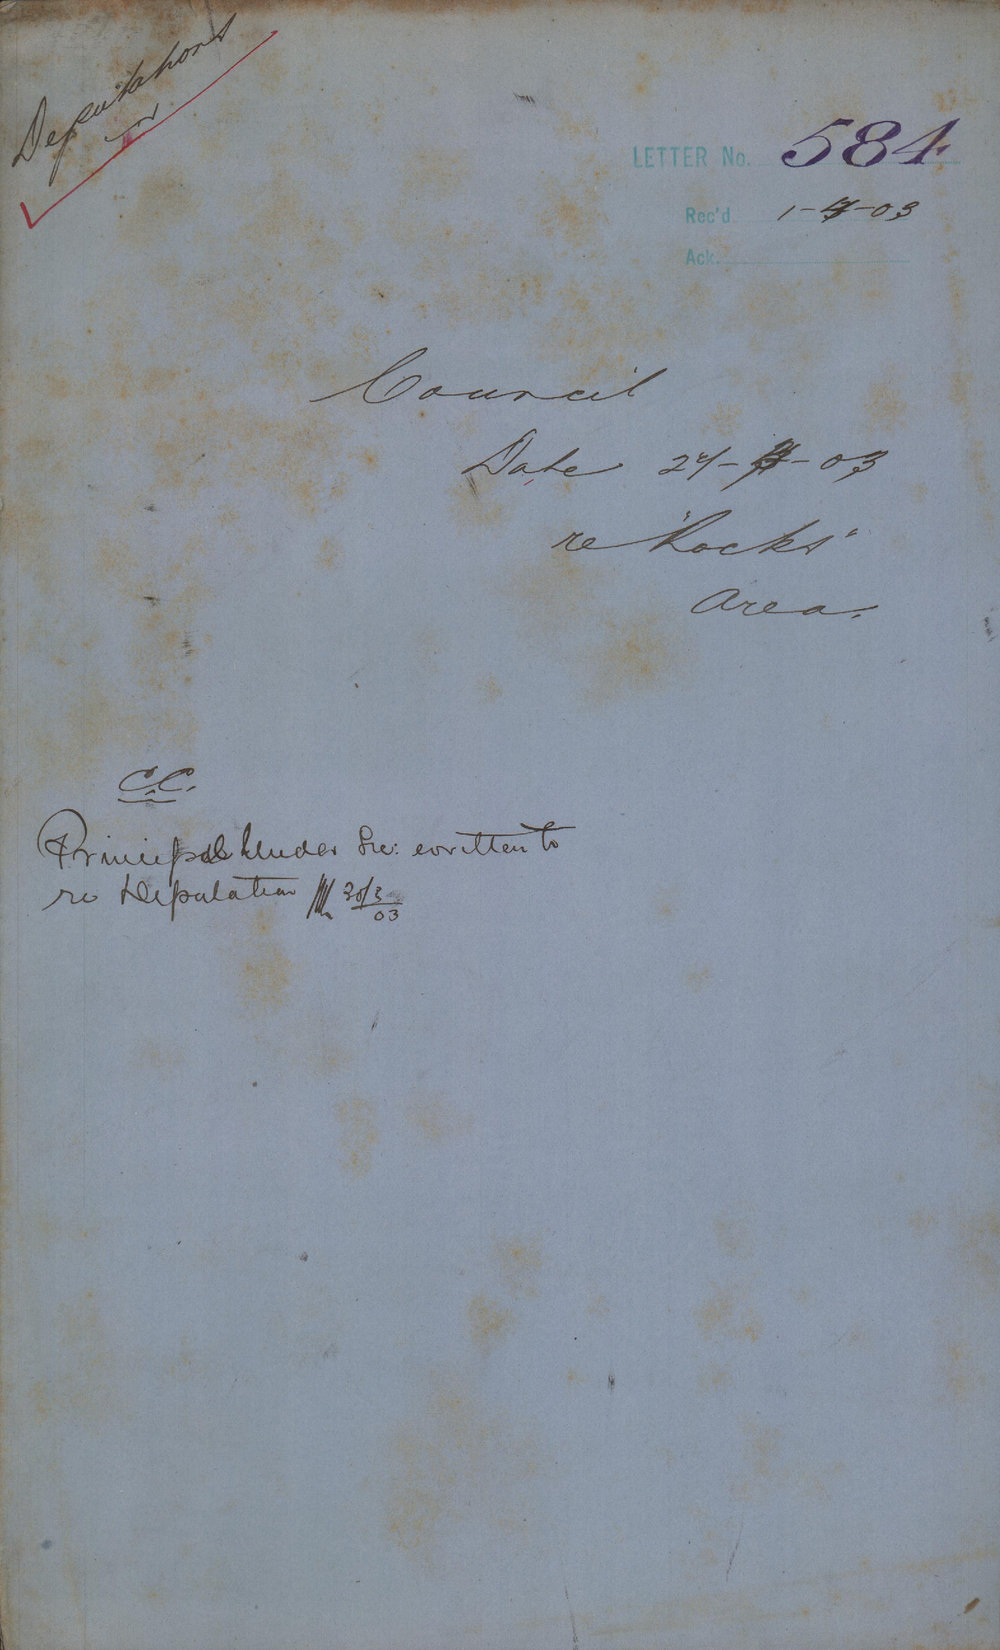 Deputations
LETTER No. 584
Rec'd 1-4-03
Ack.
Council
Date 27-3-03
re "Rocks"
Area.
C.C.
Principal Under Sec: written to
re Deputation 30/3/03